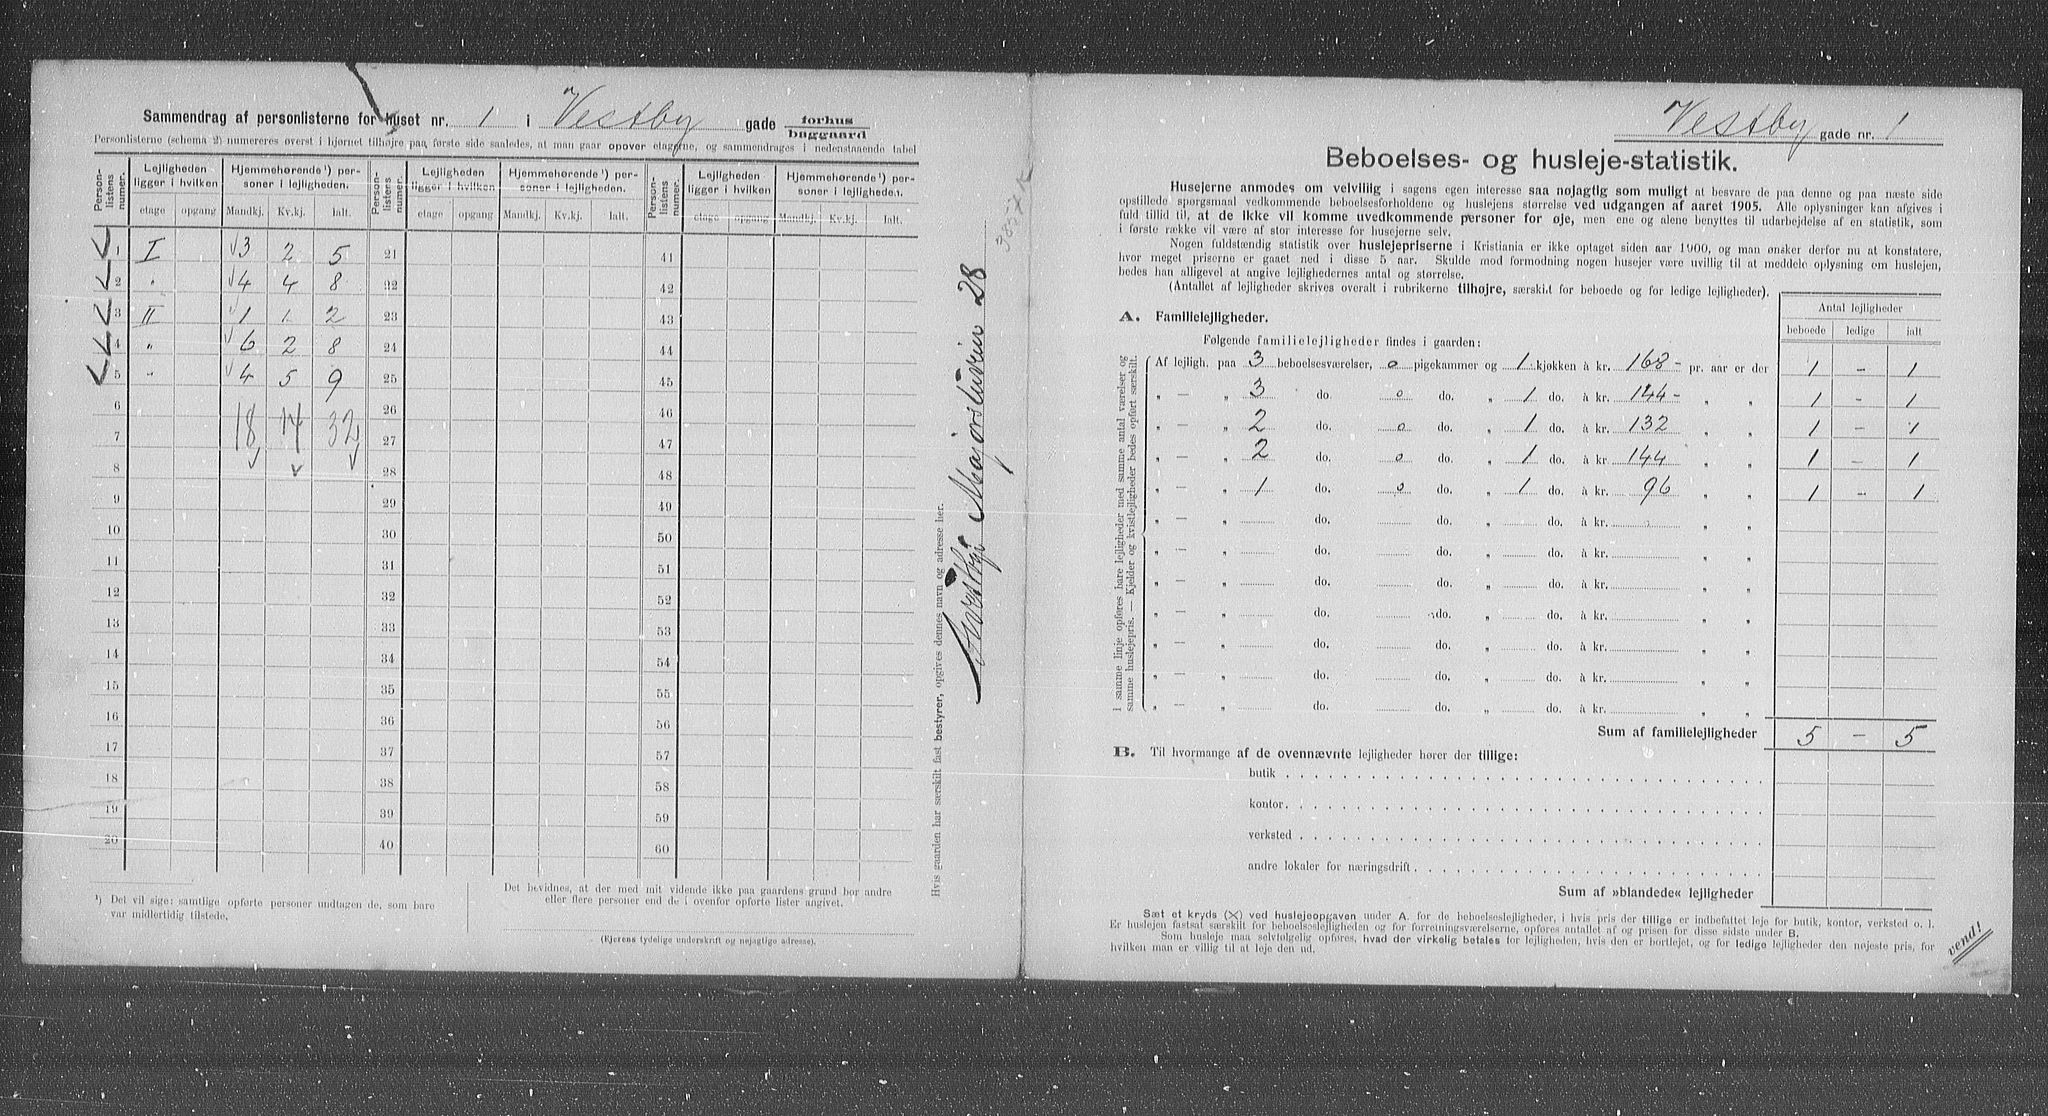 Sammendrag af personlisterne for huset nr. 1 i Vestby gade forhus baggaard
Personlisterne (schema 2) numereres øverst i hjørnet tilhøjre paa første side saaledes, at man gaar opover etagerne, og sammendrages i nedenstaaende tabel
Person-listens numer. Lejligheden ligger i hvilken Hjemmehørende ¹) personer i lejligheden. Person-listens numer. Lejligheden ligger i hvilken Hjemmehørende ¹) personer i lejligheden. Person-listens numer. Lejligheden ligger i hvilken Hjemmehørende ¹) personer i lejligheden.
etage opgang Mandkj. Kv.kj. Ialt. etage opgang Mandkj. Kv.kj. Ialt. etage opgang Mandkj. Kv.kj. Ialt.
1 I 3 2 5 21 41
2 " 4 4 8 22 42
3 II 1 1 2 23 43
4 " 6 2 8 24 44
5 " 4 5 9 25 45
6 18 14 32 26 46
7 27 47
8 28 48
9 29 49
10 30 50
11 31 51
12 32 52
13 33 53
14 34 54
15 35 55
16 36 56
17 37 57
18 38 58
19 39 59
20 40 60
¹) Det vil sige: samtlige opførte personer undtagen de, som bare
var midlertidig tilstede.
Det bevidnes, at der med mit vidende ikke paa gaardens grund bor andre
eller flere personer end de i ovenfor opførte lister angivet.
(Ejerens tydelige underskrift og nøjagtige adresse).
Hvis gaarden har særskilt fast bestyrer, opgives dennes navn og adresse her.
28
Vestby gade nr. 1
Beboelses- og husleje-statistik.
Husejerne anmodes om velvillig i sagens egen interesse saa nøjagtig som muligt at besvare de paa denne og paa næste side
opstillede spørgsmaal vedkommende beboelsesforholdene og huslejens størrelse ved udgangen af aaret 1905. Alle oplysninger kan afgives i
fuld tillid til, at de ikke vil komme uvedkommende personer for øje, men ene og alene benyttes til udarbejdelse af en statistik, som
i første række vil være af stor interesse for husejerne selv.
Nogen fuldstændig statistik over huslejepriserne i Kristiania er ikke optaget siden aar 1900, og man ønsker derfor nu at konstatere,
hvor meget priserne er gaaet ned i disse 5 aar. Skulde mod formodning nogen husejer være uvillig til at meddele oplysning om huslejen,
bedes han alligevel at angive lejlighedernes antal og størrelse.
(Antallet af lejligheder skrives overalt i rubrikerne tilhøjre, særskilt for beboede og for ledige lejligheder).
Antal lejligheder
beboede ledige ialt
A. Familielejligheder.
Følgende familielejligheder findes i gaarden:
Af lejligh. paa 3 beboelsesværelser, 0 pigekammer og 1 kjøkken à kr. 168 - pr. aar er der 1 - 1
" — " 3 do. 0 do. " 1 do. à kr. 144 - " " 1 - 1
" — " 2 do. 0 do. " 1 do. à kr. 132 " " 1 - 1
" — " 2 do. 0 do. " 1 do. à kr. 144 " " 1 - 1
" — " 1 do. 0 do. " 1 do. à kr. 96 " " 1 - 1
" — " do. do. " do. à kr. " "
" — " do. do. " do. à kr. " "
" — " do. do. " do. à kr. " "
" — " do. do. " do. à kr. " "
" — " do. do. " do. à kr. " "
" — " do. do. " do. à kr. " "
" — " do. do. " do. à kr. " "
I samme linje opføres bare lejligheder med samme antal værelser og
samme huslejepris. — Kjelder og kvistlejligheder bedes opført særskilt.
Sum af familielejligheder 5 - 5
B. Til hvormange af de ovennævnte lejligheder hører der tillige:
butik
kontor
verksted
andre lokaler for næringsdrift
Sum af »blandede« lejligheder
Sæt et kryds (X) ved huslejeopgaven under A. for de beboelseslejligheder, i hvis pris der tillige er indbefattet leje for butik, kontor, verksted o. l.
Er huslejen fastsat særskilt for beboelseslejligheden og for forretningsværelserne, opføres antallet af og prisen for disse sidste under B.
Som husleje maa selvfølgelig opføres, hvad der virkelig betales for lejligheden, hvis den er bortlejet, og for ledige lejligheder den nøjeste pris, for
hvilken man er villig til at leje den ud.
vend!